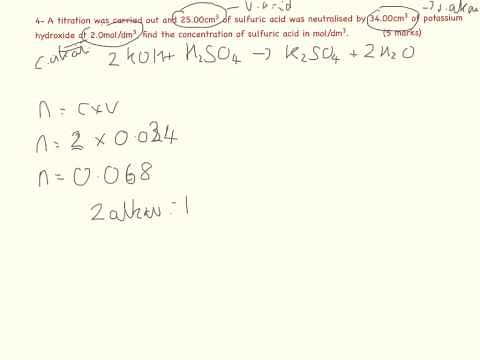 V. acid
→ v. alkali
4- A titration was carried out and 25.00cm³ of sulfuric acid was neutralised by 34.00cm³ of potassium
hydroxide of 2.0mol/dm³, find the concentration of sulfuric acid in mol/dm³. (5 marks)
c. alkali
2KOH + H₂SO₄ → K₂SO₄ + 2H₂O
n = c×v
n = 2 × 0.034
n = 0.068
2 alkali : 1